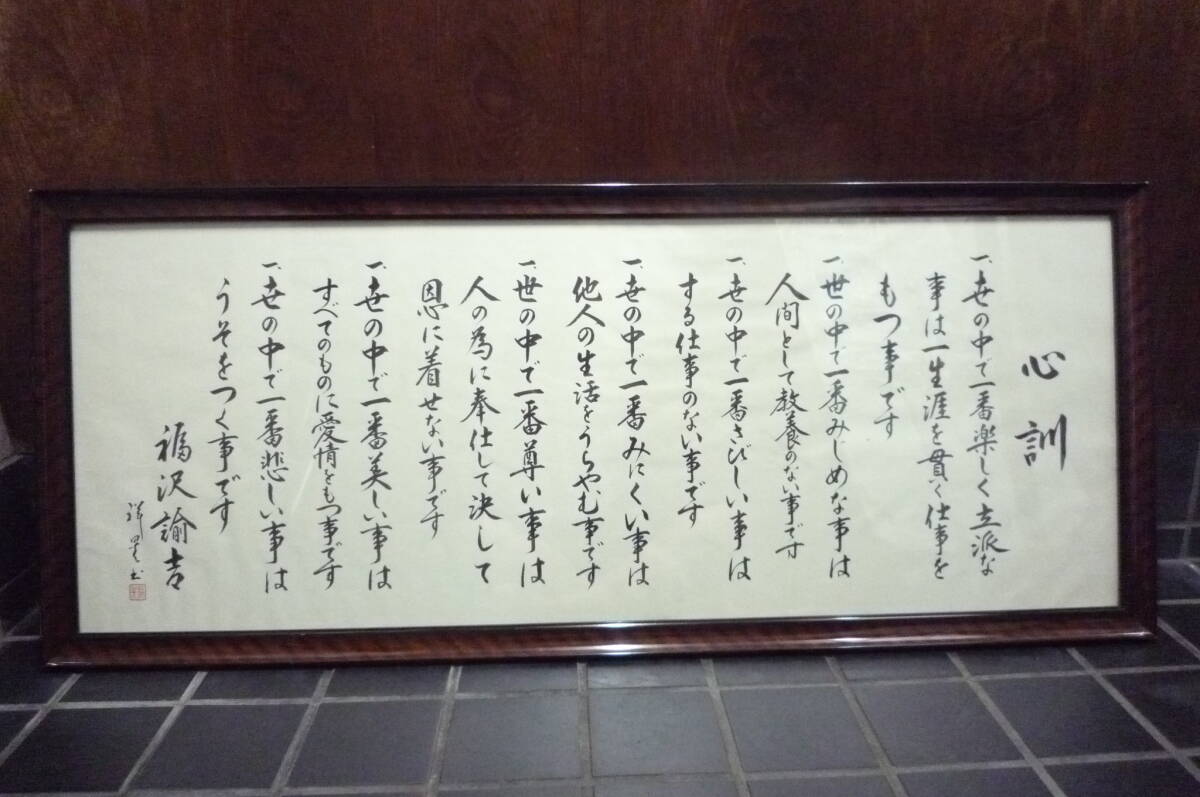 心訓
一、世の中で一番楽しく立派な
事は一生涯を貫く仕事を
もつ事です
一、世の中で一番みじめな事は
人間として教養のない事です
一、世の中で一番さびしい事は
する仕事のない事です
一、世の中で一番みにくい事は
他人の生活をうらやむ事です
一、世の中で一番尊い事は
人の為に奉仕して決して
恩に着せない事です
一、世の中で一番美しい事は
すべてのものに愛情をもつ事です
一、世の中で一番悲しい事は
うそをつく事です
福沢諭吉